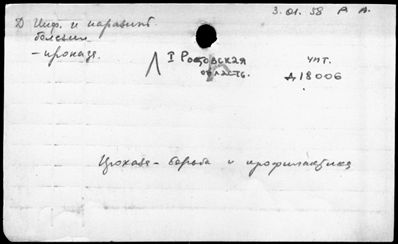 3.01.58 Р А.
D Инф. и паразит.
болезни
- проказа.
I Ростовская
область.
чит.
Д18006
Проказа - борьба и профилактика